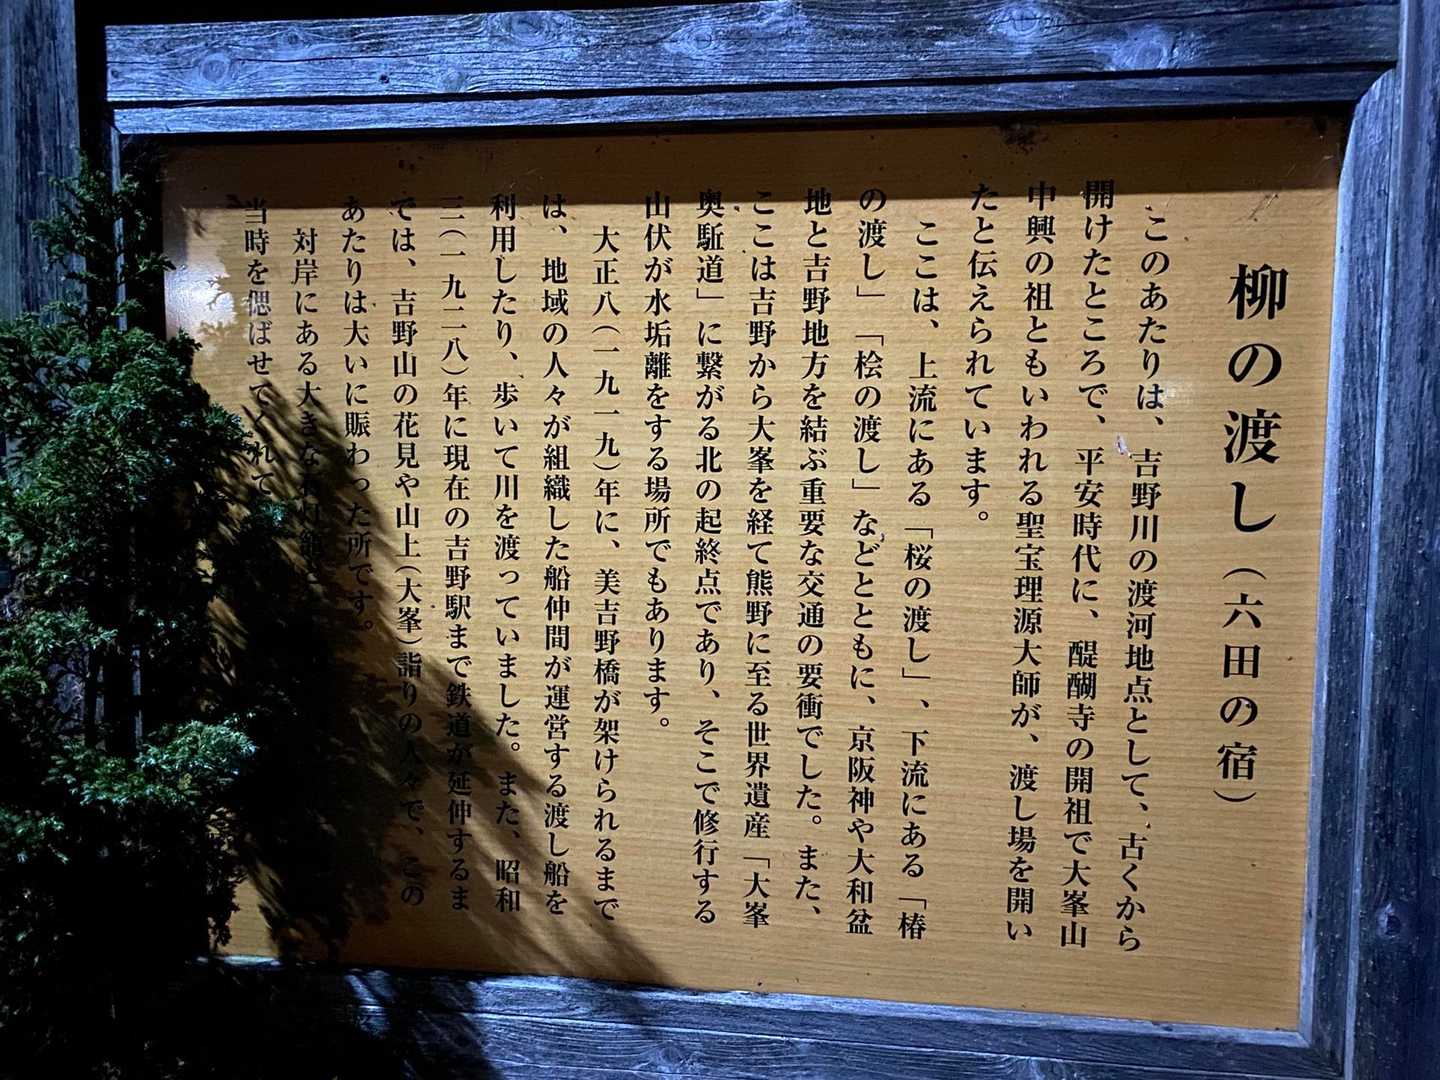 柳の渡し（六田の宿）
このあたりは、吉野川の渡河地点として、古くから
開けたところで、平安時代に、醍醐寺の開祖で大峯山
中興の祖ともいわれる聖宝理源大師が、渡し場を開い
たと伝えられています。
ここは、上流にある「桜の渡し」、下流にある「椿
の渡し」「桧の渡し」などとともに、京阪神や大和盆
地と吉野地方を結ぶ重要な交通の要衝でした。また、
ここは吉野から大峯を経て熊野に至る世界遺産「大峯
奥駈道」に繋がる北の起終点であり、そこで修行する
山伏が水垢離をする場所でもあります。
大正八（一九一九）年に、美吉野橋が架けられるまで
は、地域の人々が組織した船仲間が運営する渡し船を
利用したり、歩いて川を渡っていました。また、昭和
三（一九二八）年に現在の吉野駅まで鉄道が延伸するま
では、吉野山の花見や山上（大峯）詣りの人々で、この
あたりは大いに賑わった所です。
対岸にある大きな
当時を偲ばせてくれて